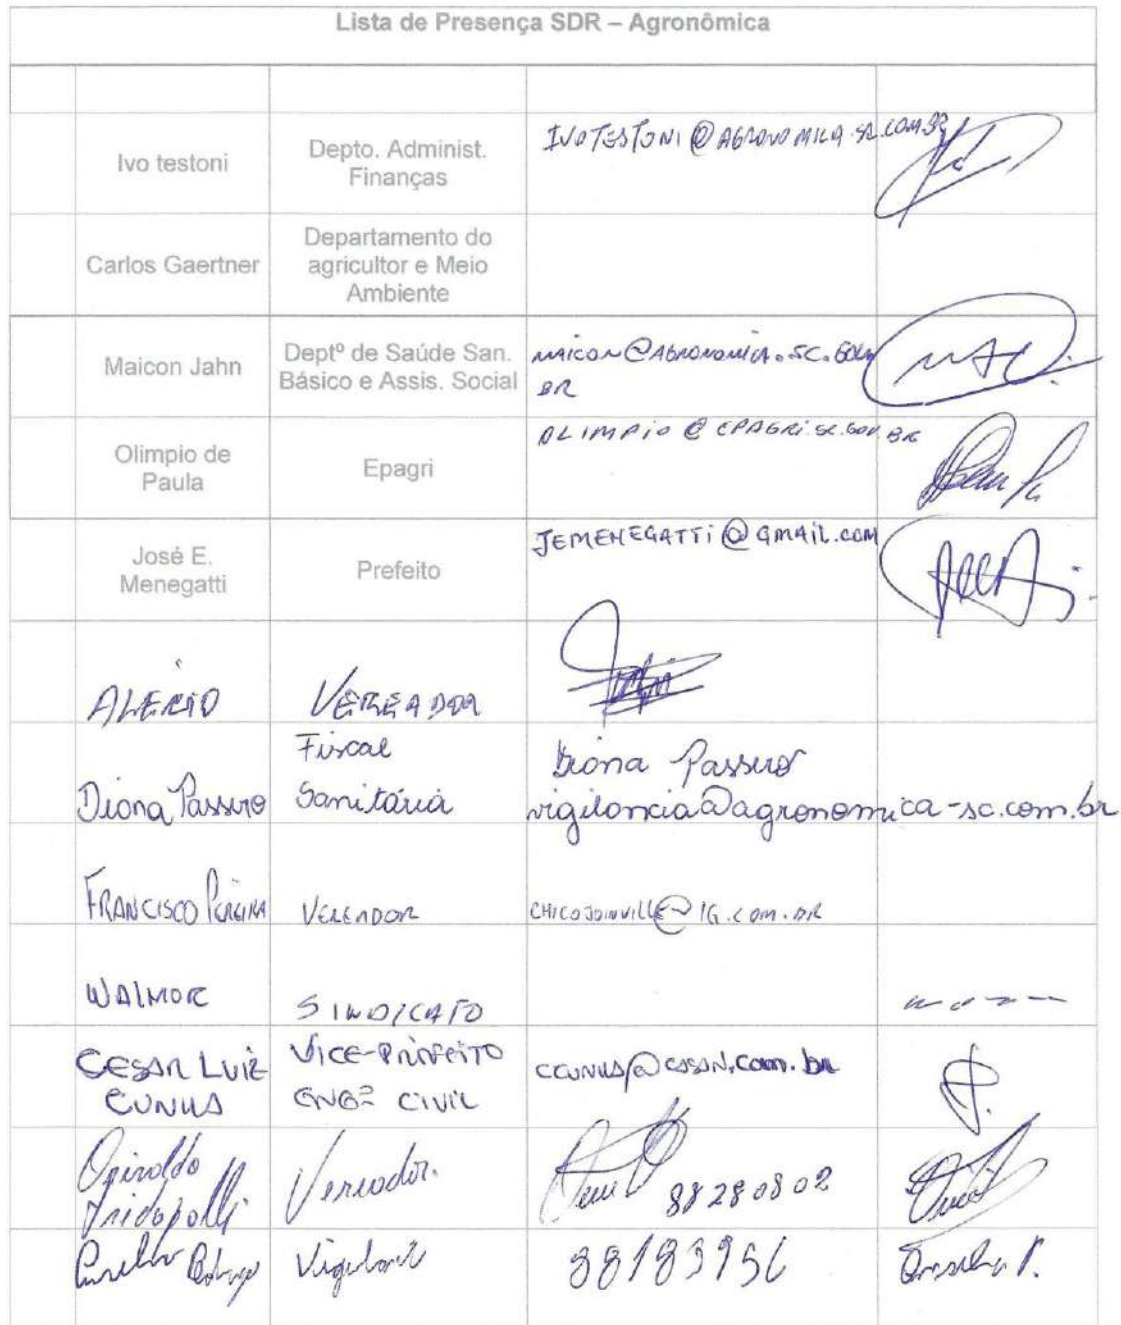 Lista de Presença SDR – Agronômica
Ivo testoni
Depto. Administ.
Finanças
IVOTESTONI@AGRONOMICA.SC.COM.BR
Carlos Gaertner
Departamento do
agricultor e Meio
Ambiente
Maicon Jahn
Deptº de Saúde San.
Básico e Assis. Social
MAICON@AGRONOMICA.SC.GOV
BR
Olimpio de
Paula
Epagri
OLIMPIO@EPAGRI.SC.GOV.BR
José E.
Menegatti
Prefeito
JEMENEGATTI@GMAIL.COM
VEREADOR
Diona Passero
Fiscal
Sanitária
Diona Passero
vigilancia@agronomica-sc.com.br
FRANCISCO PEREIRA
VEREADOR
CHICOJOINVILLE@IG.COM.BR
WALMOR
SINDICATO
CESAR LUIZ
CUNHA
VICE-PREFEITO
ENGº CIVIL
CCUNHA@CASAN.COM.br
Vereador.
88280802